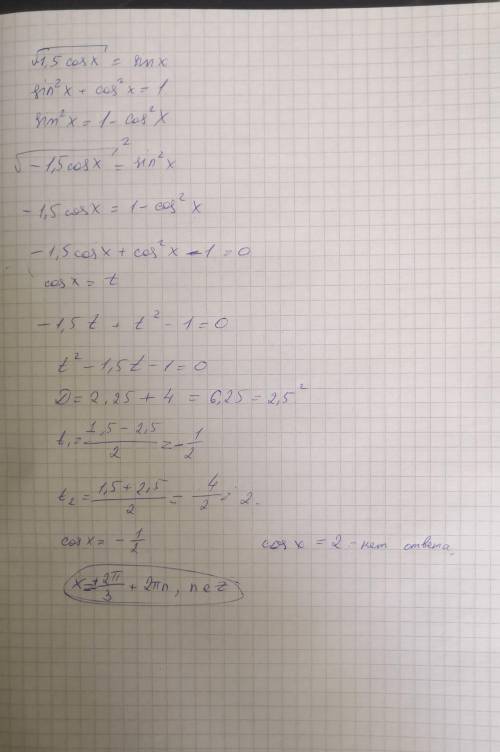 √1,5 cosx = sinx
sin²x + cos²x = 1
sin²x = 1 - cos²x
√-1,5cosx² = sin²x
-1,5cosx = 1 - cos²x
-1,5cosx + cos²x - 1 = 0
cosx = t
-1,5t + t² - 1 = 0
t² - 1,5t - 1 = 0
D = 2,25 + 4 = 6,25 = 2,5²
t₁ = (1,5 - 2,5)/2 = -1/2
t₂ = (1,5 + 2,5)/2 = 4/2 = 2.
cosx = -1/2 cosx = 2 - нет ответа.
x = ±2π/3 + 2πn, n ∈ Z